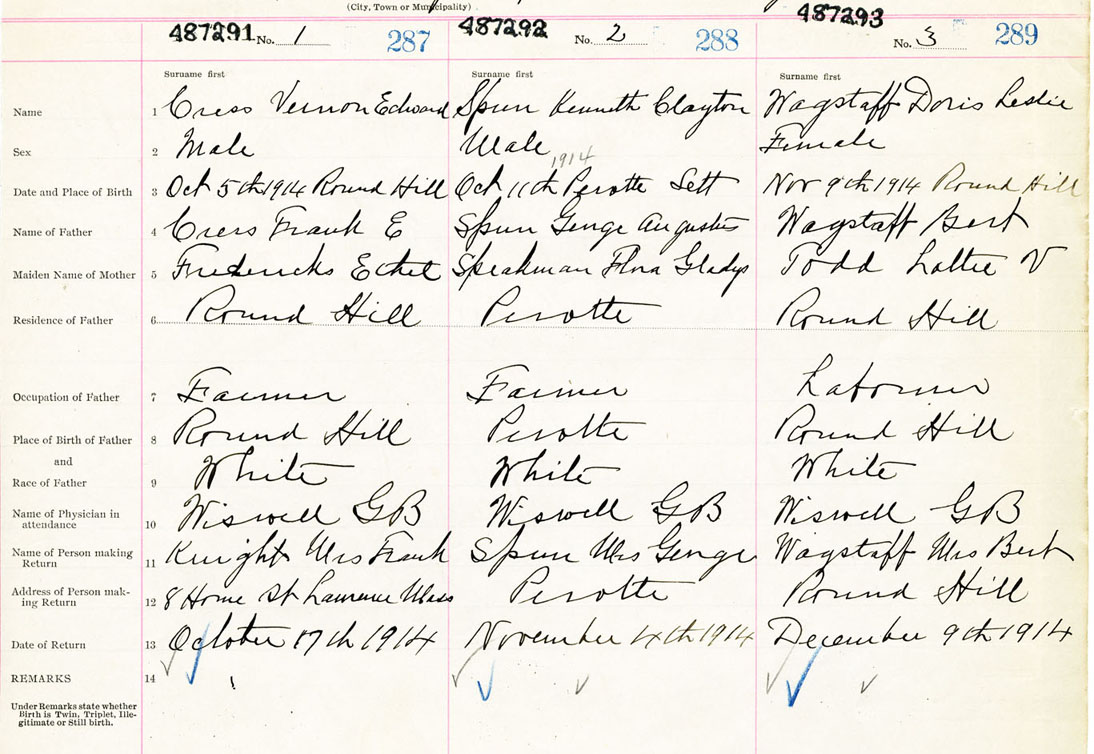 (City, Town or Municipality)
487291 No. 1 287 487292 No. 2 288 487293 No. 3 289
Surname first Surname first Surname first
Name 1 Cress Vernon Edward Spurr Kenneth Clayton Wagstaff Doris Leslie
Sex 2 Male Male Female
1914
Date and Place of Birth 3 Oct 5th 1914 Round Hill Oct 11th Perotte Sett Nov 9th 1914 Round Hill
Name of Father 4 Cress Frank E Spurr George Augustus Wagstaff Bert
Maiden Name of Mother 5 Fredericks Ethel Speakman Flora Gladys Todd Lottie V
Residence of Father 6 Round Hill Perotte Round Hill
Occupation of Father 7 Farmer Farmer Laborer
Place of Birth of Father 8 Round Hill Perotte Round Hill
and
Race of Father 9 White White White
Name of Physician in
attendance 10 Wiswell GB Wiswell GB Wiswell GB
Name of Person making
Return 11 Knight Mrs Frank Spurr Mrs George Wagstaff Mrs Bert
Address of Person mak-
ing Return 12 8 Home St Lawrence Mass Perotte Round Hill
Date of Return 13 October 17th 1914 November 4th 1914 December 9th 1914
REMARKS 14
Under Remarks state whether
Birth is Twin, Triplet, Ille-
gitimate or Still birth.